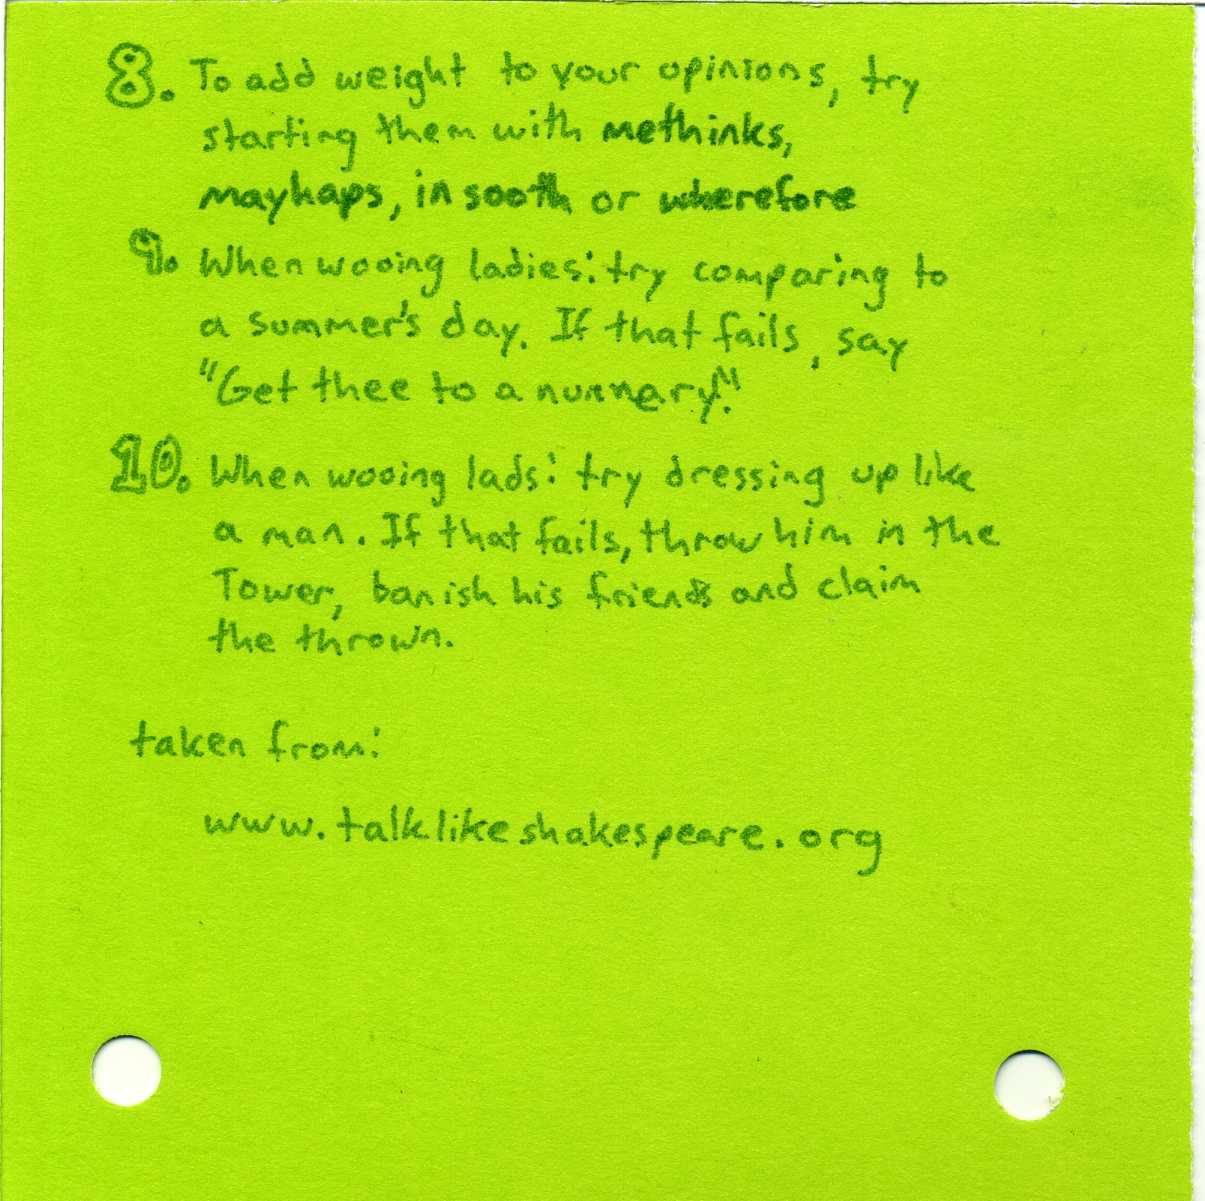 8. To add weight to your opinions, try
starting them with methinks,
mayhaps, in sooth or wherefore
9. When wooing ladies: try comparing to
a summer's day. If that fails, say
"Get thee to a nunnary."
10. When wooing lads: try dressing up like
a man. If that fails, throw him in the
Tower, banish his friends and claim
the thrown.
taken from:
www.talklikeshakespeare.org